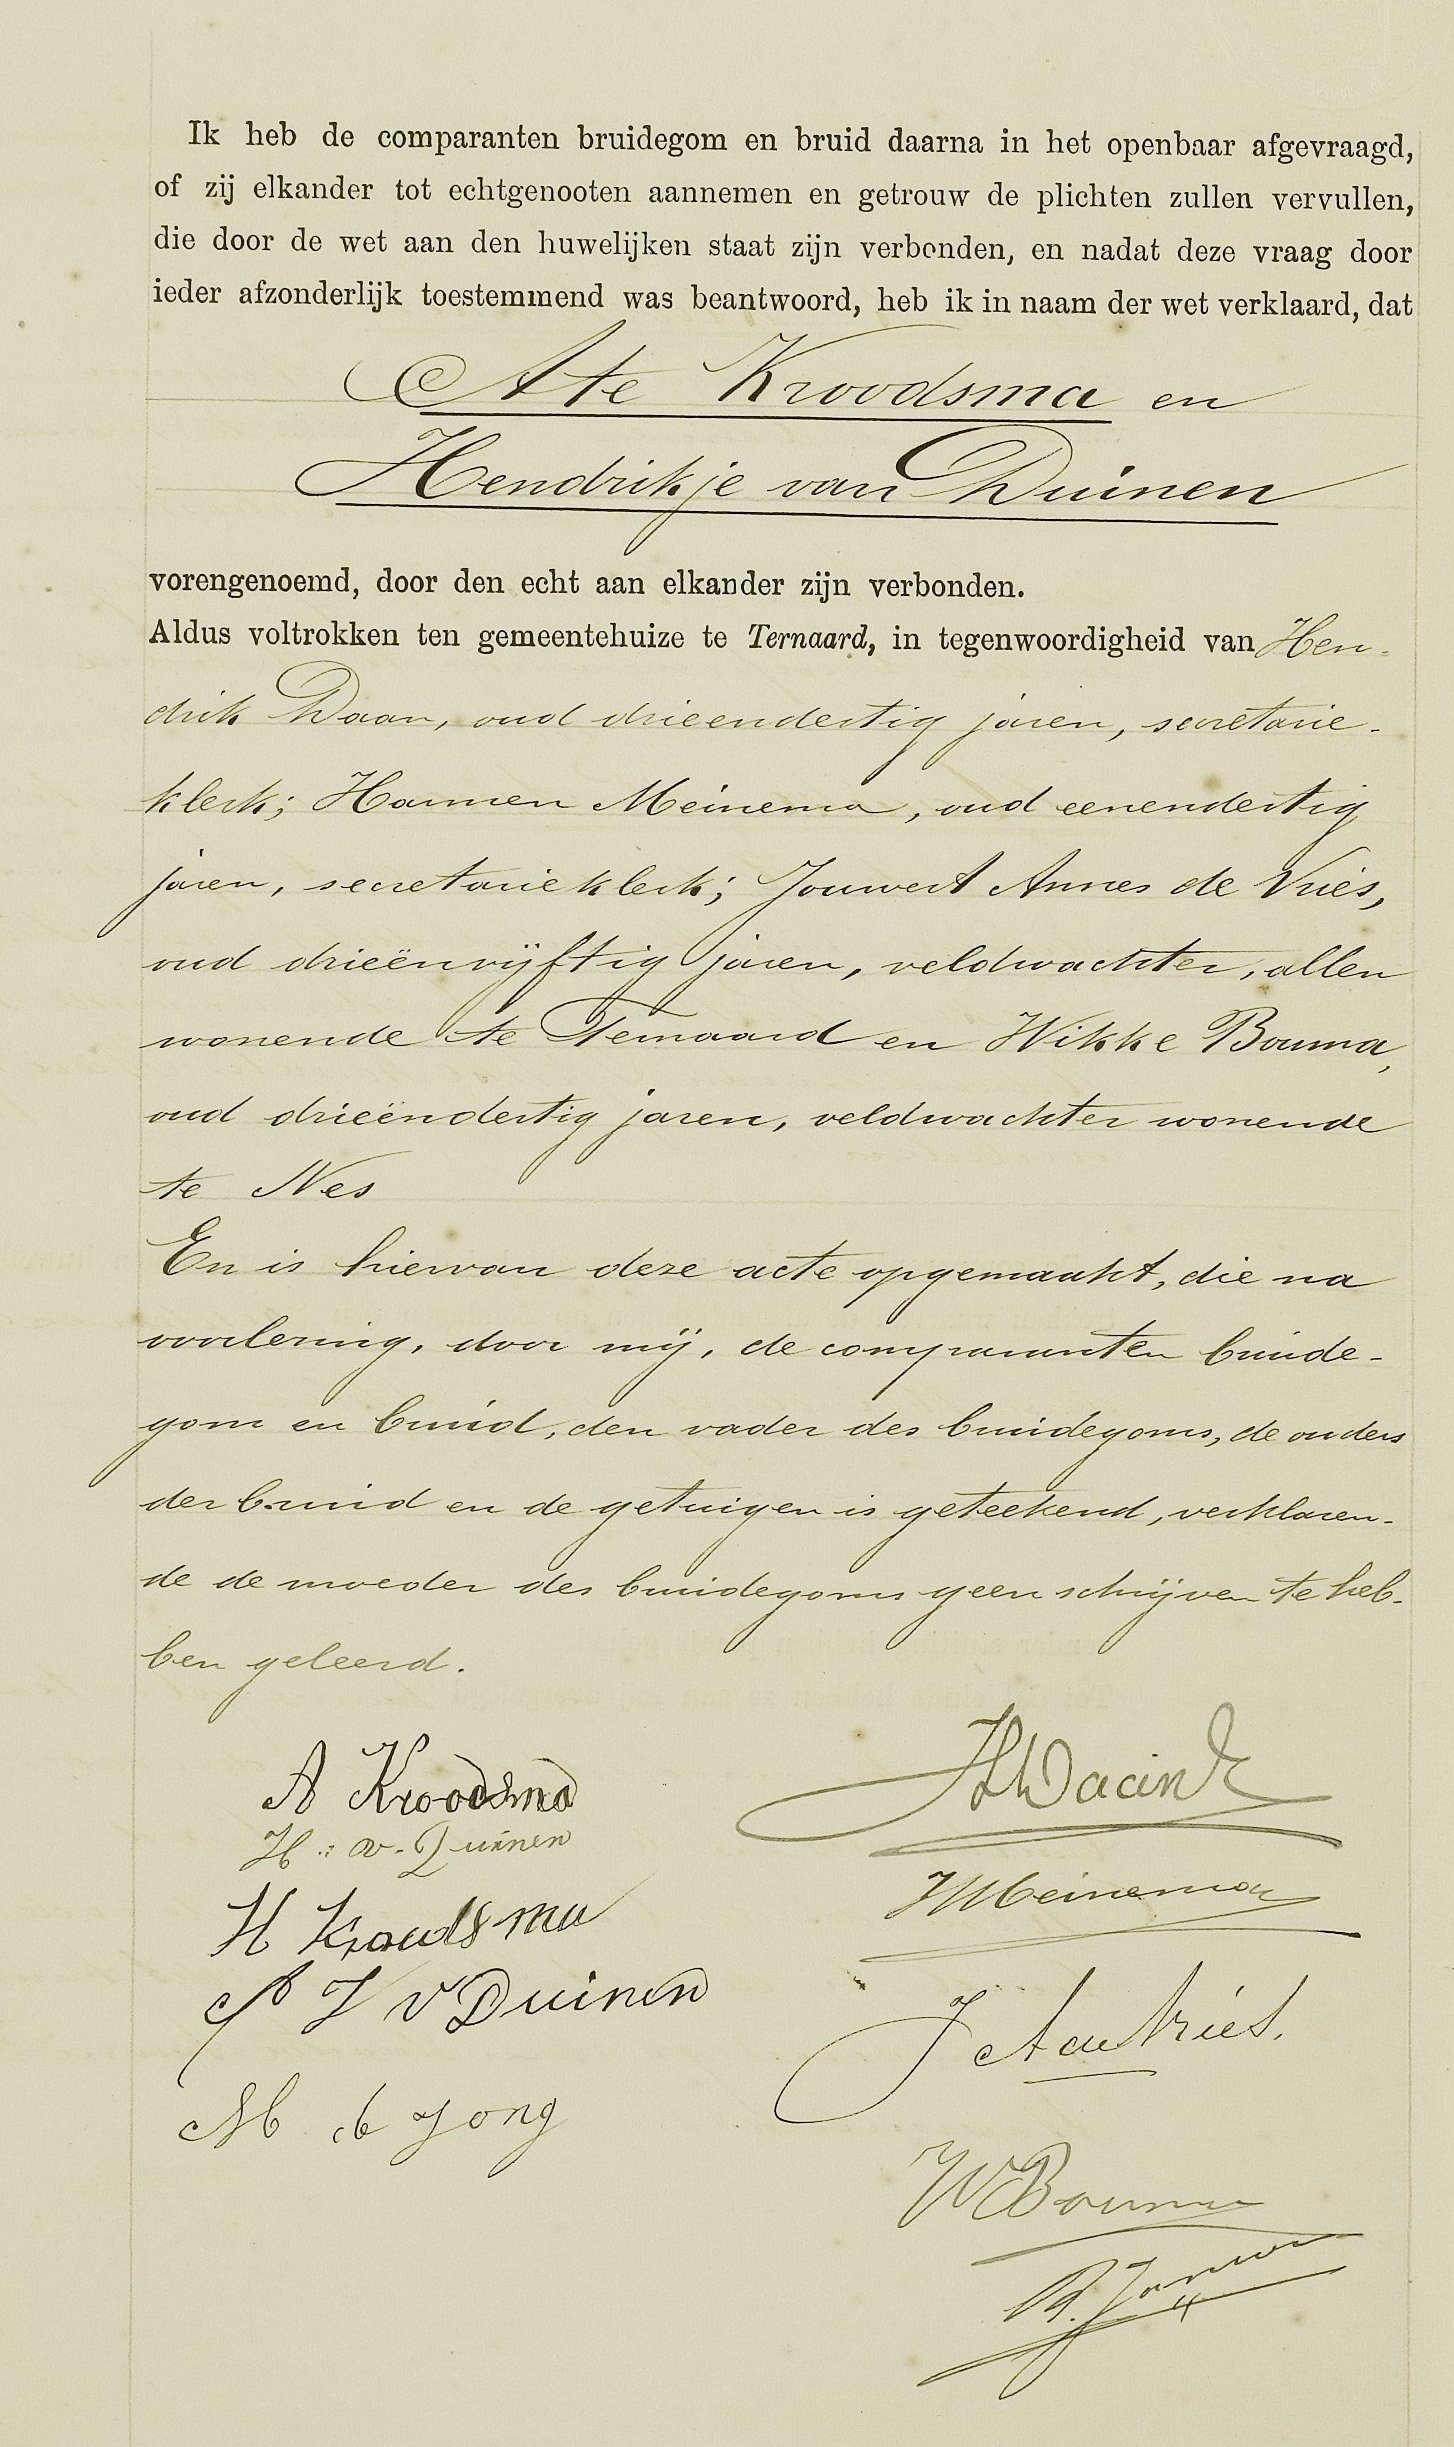 Ik heb de comparanten bruidegom en bruid daarna in het openbaar afgevraagd,
of zij elkander tot echtgenooten aannemen en getrouw de plichten zullen vervullen,
die door de wet aan den huwelijken staat zijn verbonden, en nadat deze vraag door
ieder afzonderlijk toestemmend was beantwoord, heb ik in naam der wet verklaard, dat
Ate Kroodsma en
Hendrikje van Duinen
vorengenoemd, door den echt aan elkander zijn verbonden.
Aldus voltrokken ten gemeentehuize te Ternaard, in tegenwoordigheid van Hen-
drik Daan, oud drieendertig jaren, secretarie-
klerk; Harmen Meinema, oud eenendertig
jaren, secretarieklerk; Jouwert Annes de Vries,
oud drieënvijftig jaren, veldwachter, allen
wonende te Ternaard en Wikke Bouma,
oud drieëndertig jaren, veldwachter wonende
te Nes
En is hiervan deze acte opgemaakt, die na
voorlezing, door mij, de comparanten bruide-
gom en bruid, den vader des bruidegoms, de ouders
der bruid en de getuigen is geteekend, verklaren-
de de moeder des bruidegoms geen schrijven te heb-
ben geleerd.
A Kroodsma
H: v. Duinen
H Kroodsma
J v Duinen
M d Jong
HDaan
HMeinema
J A de Vries.
WBouma